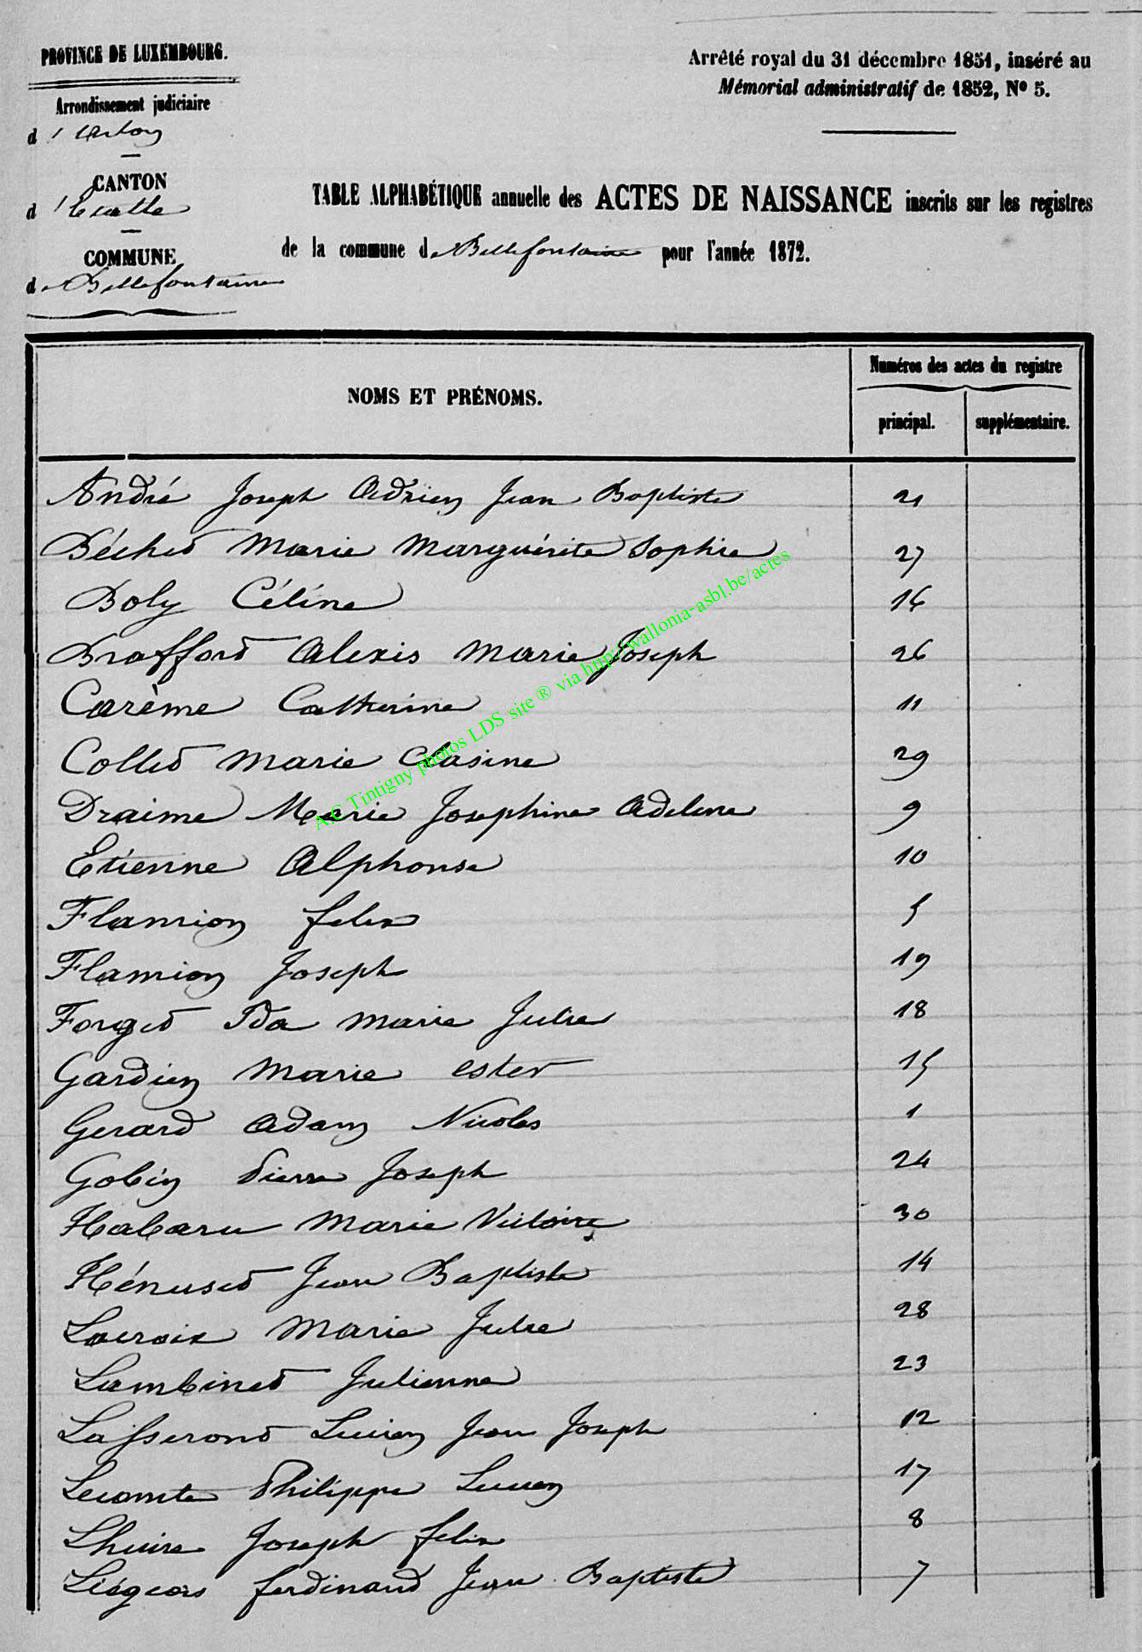 PROVINCE DE LUXEMBOURG.
Arrêté royal du 31 décembre 1851, inséré au
Mémorial administratif de 1852, Nº 5.
Arrondissement judiciaire
d'Arlon
CANTON
d'Etalle
COMMUNE
de Bellefontaine
TABLE ALPHABÉTIQUE annuelle des ACTES DE NAISSANCE inscrits sur les registres
de la commune de Bellefontaine pour l'année 1872.
NOMS ET PRÉNOMS.
Numéros des actes du registre
principal. supplémentaire.
André Joseph Adrien Jean Baptiste 21
Béchet Marie Marguérite Sophie 27
Boly Céline 16
Brafford Alexis Marie Joseph 26
Carème Catherine 11
Collet Marie 29
Draime Marie Josephine Adeline 9
Etienne Alphonse 10
Flamion felix 5
Flamion Joseph 19
Forget Ida Marie Julie 18
Gardien Marie Ester 15
Gerard Adam Nicolas 1
Gobin Pierre Joseph 24
Habaru Marie Victoire 30
Hénuset Jean Baptiste 14
Lacroix Marie Julie 28
Lambinet Julienne 23
Lucien Jean Joseph 12
Lecomte Philippe Lucien 17
Joseph felix 8
Liégeois ferdinand Jean Baptiste 7
A.C Tintigny photos LDS site ® via http://wallonia-asbl.be/actes